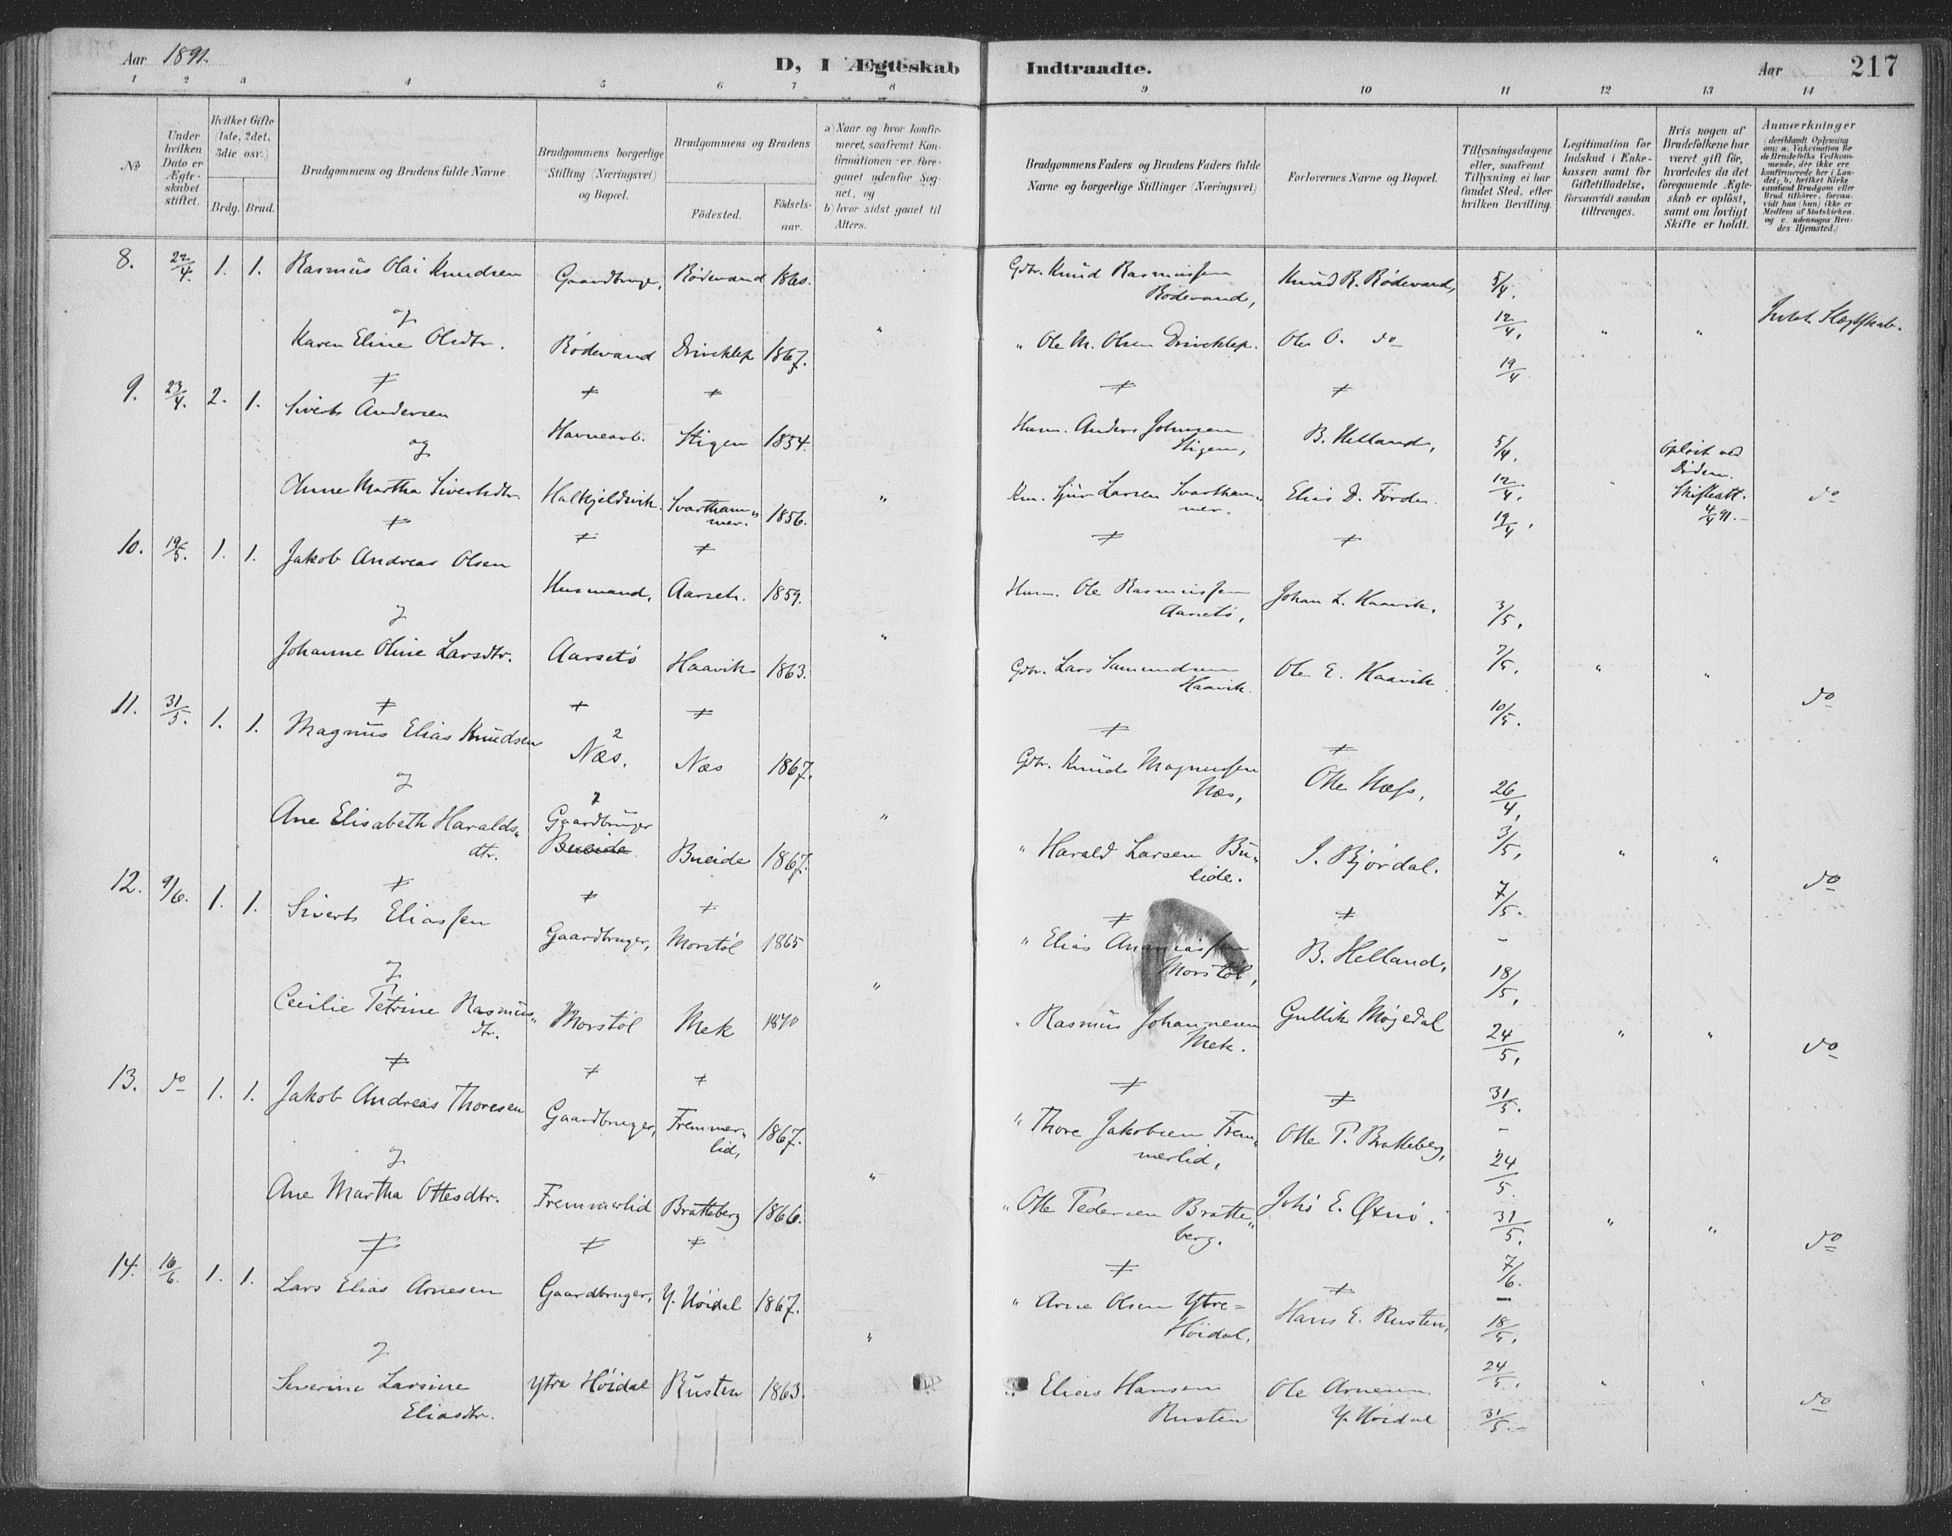 Aar 1891.
D, I Ægteskab Indtraadte.
Aar 217
1 2 3 4 5 6 7 8 9 10 11 12 13 14
No
Under hvilken Dato er Ægteskabet stiftet.
Hvilket Gifte (1ste, 2det, 3die osv.)
Brdg. Brud.
Brudgommens og Brudens fulde Navne.
Brudgommens borgerlige Stilling (Næringsvei) og Bopæl.
Brudgommens og Brudens
Födested.
Födsels-aar.
a) Naar og hvor konfirmeret, saafremt Konfirmationen er foregaaet udenfor Sognet, og
b) hvor sidst gaaet til Alters.
Brudgommens Faders og Brudens Faders fulde Navne og borgerlige Stillinger (Næringsvei)
Forlovernes Navne og Bopæl.
Tillysningsdagene eller, saafremt Tillysning ei har fundet Sted, efter hvilken Bevilling.
Legitimation for Indskud i Enkekassen samt for Giftetilladelse, forsaavidt saadan tiltrænges.
Hvis nogen af Brudefolkene har været gift før, hvorledes da det foregaaende Ægteskab er oplöst, samt om lovligt Skifte er holdt.
Anmærkninger (deriblandt Oplysning om: a. Vakcination for de Brudefolks Vedkommende, der ikke ere konfirmerede her i Landet; b. hvilket Kirkesamfund Brudgom eller Brud tilhører, forsaavidt han (hun) ikke er Medlem af Statskirken, og c. udensogns Brudes Hjemsted.)
8. 22/4. 1. 1. Rasmus Olai Knudsen Gaardbruger, Rødevand 1860. Gdbr. Knud Rasmussen Rødevand, Knud R. Rødevand, 5/4.
og 12/4, " " Intet Slægtskab.
Karen Eline Olsdtr. Rødevand Driveklep 1867. " " Ole M. Olsen Driveklep. Ole O. do 19/4
9. 23/4. 2. 1. Sivert Andersen Havnearb. Stigen 1854. Husm. Anders Johnsen Stigen, B. Helland, 5/4.
og Opløst ved Døden.
Anne Martha Sivertsdtr Halkjeldsvik. Svarthammer. 1856. " Sjur Larsen Svarthammer. Elias D. Førde. 12/4. " Skifteatt. 4/4 91. do
19/4.
10. 19/5. 1. 1. Jakob Andreas Olsen Husmand, Aarseth. 1859. Husm. Ole Rasmussen Aarsetø, Johan L. Haavik, 3/5.
og
Johanne Oline Larsdtr. Aarsetø Haavik 1863. " Gdbr. Lars Samundsen Haavik. Ole E. Haavik. 7/5. " " do
10/5.
11. 31/5. 1. 1. Magnus Elias Knudsen 2 Næs. Næs 1867. Gdbr. Knud Magnussen Næs, Otte Næss, 26/4,
og 3/5,
Ane Elisabeth Haraldsdtr. 1 Gaardbruger Bueide Bueide 1867. " " Harald Larsen Bueide. J. Bjørdal. 7/5. " " do
12. 9/6. 1. 1. Siverts Eliassen Gaardbruger, Morstöl 1865 " Elias Ananiassen Morstöl, B. Helland, 18/5,
og
Cecilie Petrine Rasmusdtr. Morstöl Mek 1870 " " Rasmus Johannesen Mek. Gullik Møgedal 24/5, " " do
31/5.
13. do 1. 1. Jakob Andreas Thoresen Gaardbruger, Fremmerlid, 1867. " Thore Jakobsen Fremmerlid, Otte P. Bratteberg, 24/5.
og
Ane Martha Ottesdtr. Fremmerlid Bratteberg 1866. " " Otte Pedersen Bratteberg. Johs E. Øxnø. 31/5. " " do
7/6.
14. 16/6. 1. 1. Lars Elias Arnesen Gaardbruger, Y. Höidal 1867. " Arne Olsen Ytre-Höidal, Hans E. Rusten, 18/5,
og 24/5.
Severine Larsine Eliasdtr. Ytra Höidal Rusten 1863. " " Elias Hansen Rusten Ole Arnesen Y. Höidal 31/5. " " do